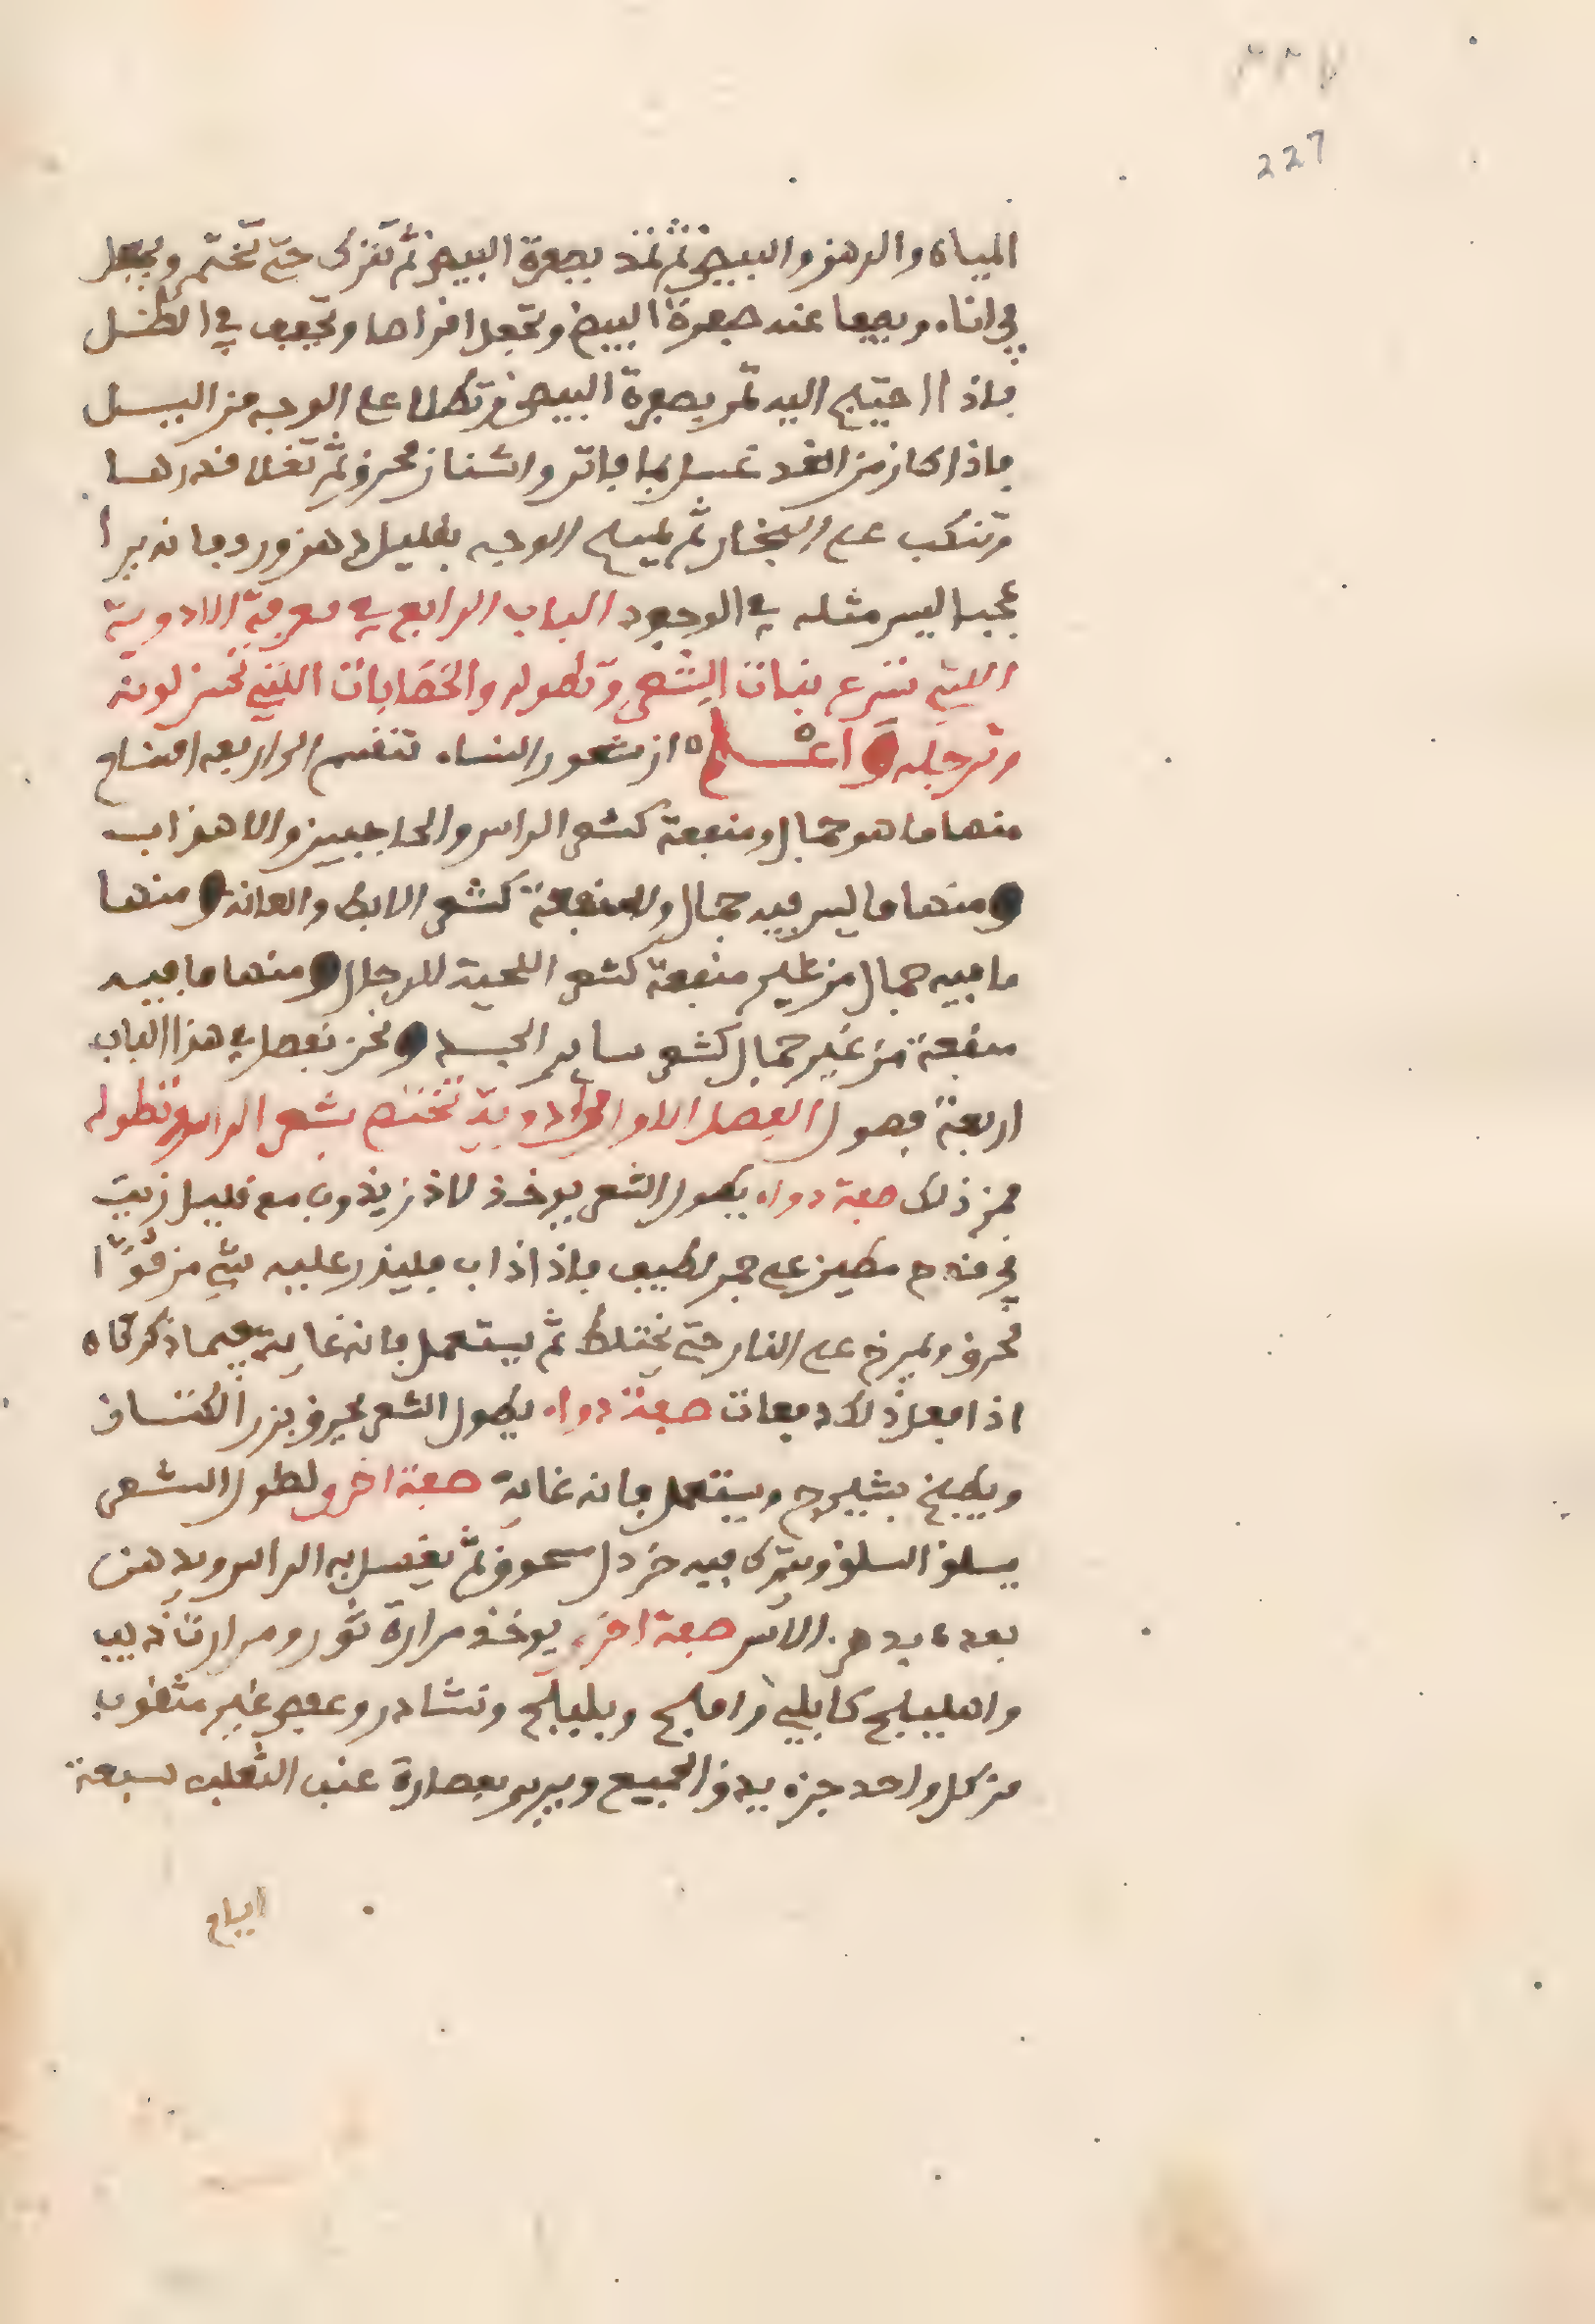 ٢٢٧
227
المياه والدهن والبيض ثم تمد بصفرة البيض ثم تترك حتى تختمر ويجعل
في اناء ويضيفا عند صفرة البيض وتجعل اقراصا وتجفف في الظل
فاذا احتيج اليه تمر بصفرة البيض وتطلا على الوجه من اليل
فاذا كان من الغد غسل بما فاتر واشنان محرق ثم تغلا قدرها
وتنكب على البخار ثم يمسح الوجه بقليل دهن ورد فانه يرا
عجبا ليس مثله في الوجود الباب الرابع في معرفة الادوية
اللتي تسرع بنبات الشعر وتطوله والخضابات اللتي تحسن لونه
وترجله واعلم ان شعور النساء تنقسم الى اربعه اقسام
منها ما هو جمال ومنفعة كشعر الراس والحاجبين والاهذاب
ومنها ما ليس فيه جمال ولا منفعة كشعر الابط والعانة ومنها
ما فيه جمال من غير منفعة كشعر اللحية للرجال ومنها ما فيه
منفعة من غير جمال كشعر ساير الجسد ونحن نفصل في هذا الباب
اربعة فصول الفصل الاول في ادوية تختص بشعر الراس وتطوله
فمن ذلك صفة دواء يطول الشعر يوخذ لاذن يذوب مع قليل زيت
في قدح مطين على جمر لطيف فاذا ذاب فليذر عليه شي من فوا
محرق ويمرخ على النار حتى يختلط ثم يستعمل فانه غاية فيما ذكرناه
اذا فعل ذلك دفعات صفة دواء يطول الشعر يحرق بزر الكتان
ويطبخ بشيرج ويستعمل فانه غاية صفة اخرى لطول الشعر
يسلق السلق ويترك فيه خردل مسحوق ثم يغسل به الراس ويدهن
بعده بدهن الاس صفة اخرى يوخذ مرارة ثور ومرارة ذيب
واهليلج كابلي وا ملج وبليلج ونشادر وعفص غير مثقوب
من كل واحد جزء يدق الجميع ويربى بعصارة عنب الثعلب سبعة
ايام